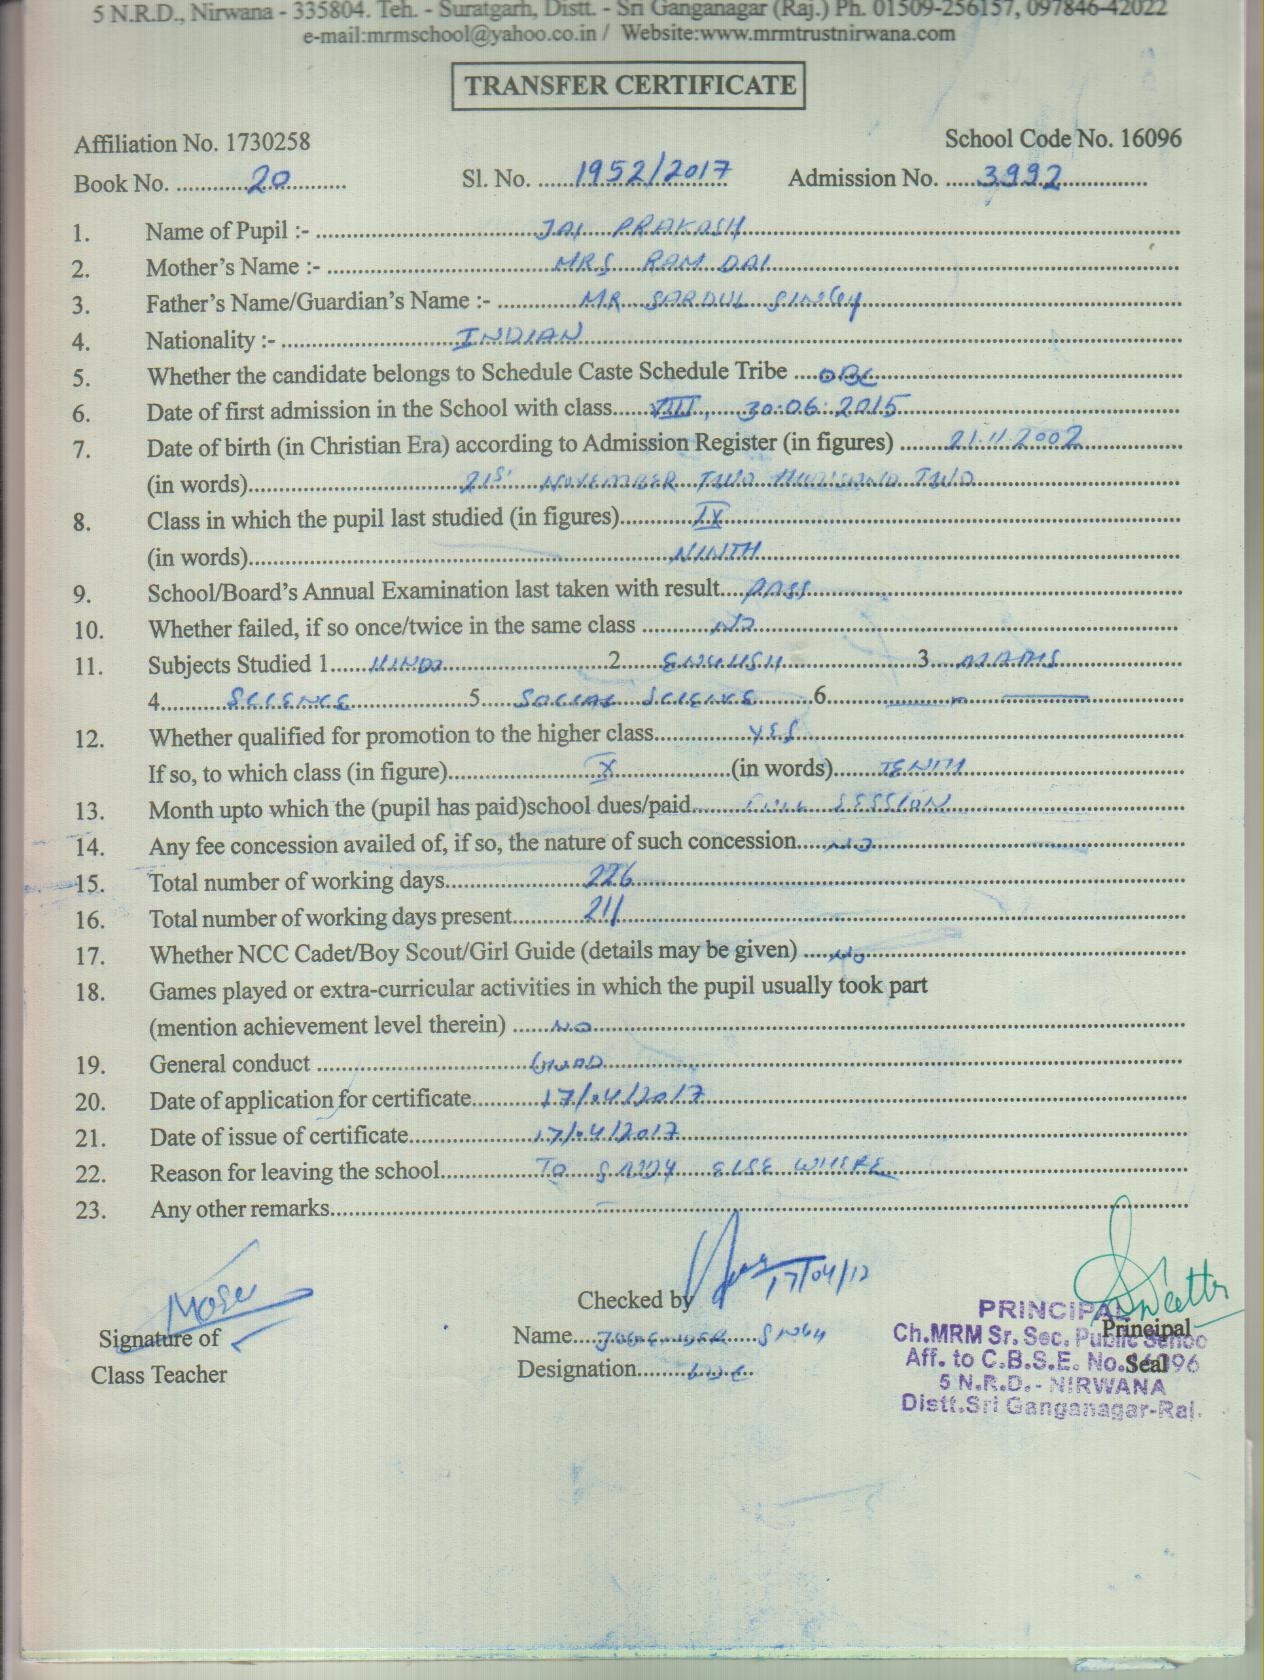 5 N.R.D., Nirwana - 335804. Teh. - Suratgarh, Distt. - Sri Ganganagar (Raj.) Ph. 01509-256157, 097846-42022
e-mail:mrmschool@yahoo.co.in / Website:www.mrmtrustnirwana.com
TRANSFER CERTIFICATE
Affiliation No. 1730258 School Code No. 16096
Book No. 20 Sl. No. 1952/2017 Admission No. 3992
1. Name of Pupil :- JAI PRAKASH
2. Mother's Name :- MRS RAM DAI
3. Father's Name/Guardian's Name :- MR SARDUL SINGH
4. Nationality :- INDIAN
5. Whether the candidate belongs to Schedule Caste Schedule Tribe OBC
6. Date of first admission in the School with class VIII, 30.06.2015
7. Date of birth (in Christian Era) according to Admission Register (in figures) 21.11.2002
(in words) 21st NOVEMBER TWO THOUSAND TWO
8. Class in which the pupil last studied (in figures) IX
(in words) NINTH
9. School/Board's Annual Examination last taken with result PASS
10. Whether failed, if so once/twice in the same class NO
11. Subjects Studied 1 HINDI 2 ENGLISH 3 MATHS
4 SCIENCE 5 SOCIAL SCIENCE 6
12. Whether qualified for promotion to the higher class YES
If so, to which class (in figure) X (in words) TENTH
13. Month upto which the (pupil has paid)school dues/paid FULL SESSION
14. Any fee concession availed of, if so, the nature of such concession NO
15. Total number of working days 226
16. Total number of working days present 211
17. Whether NCC Cadet/Boy Scout/Girl Guide (details may be given) NO
18. Games played or extra-curricular activities in which the pupil usually took part
(mention achievement level therein) NO
19. General conduct GOOD
20. Date of application for certificate 17/04/2017
21. Date of issue of certificate 17/04/2017
22. Reason for leaving the school TO STUDY ELSE WHERE
23. Any other remarks
17/04/17
Checked by
PRINCIPAL
Principal
Signature of Name SINGH Ch.MRM Sr. Sec. Public
Class Teacher Designation Aff. to C.B.S.E. No. 16096
Seal
5 N.R.D.- NIRWANA
Distt.Sri Ganganagar-Raj.